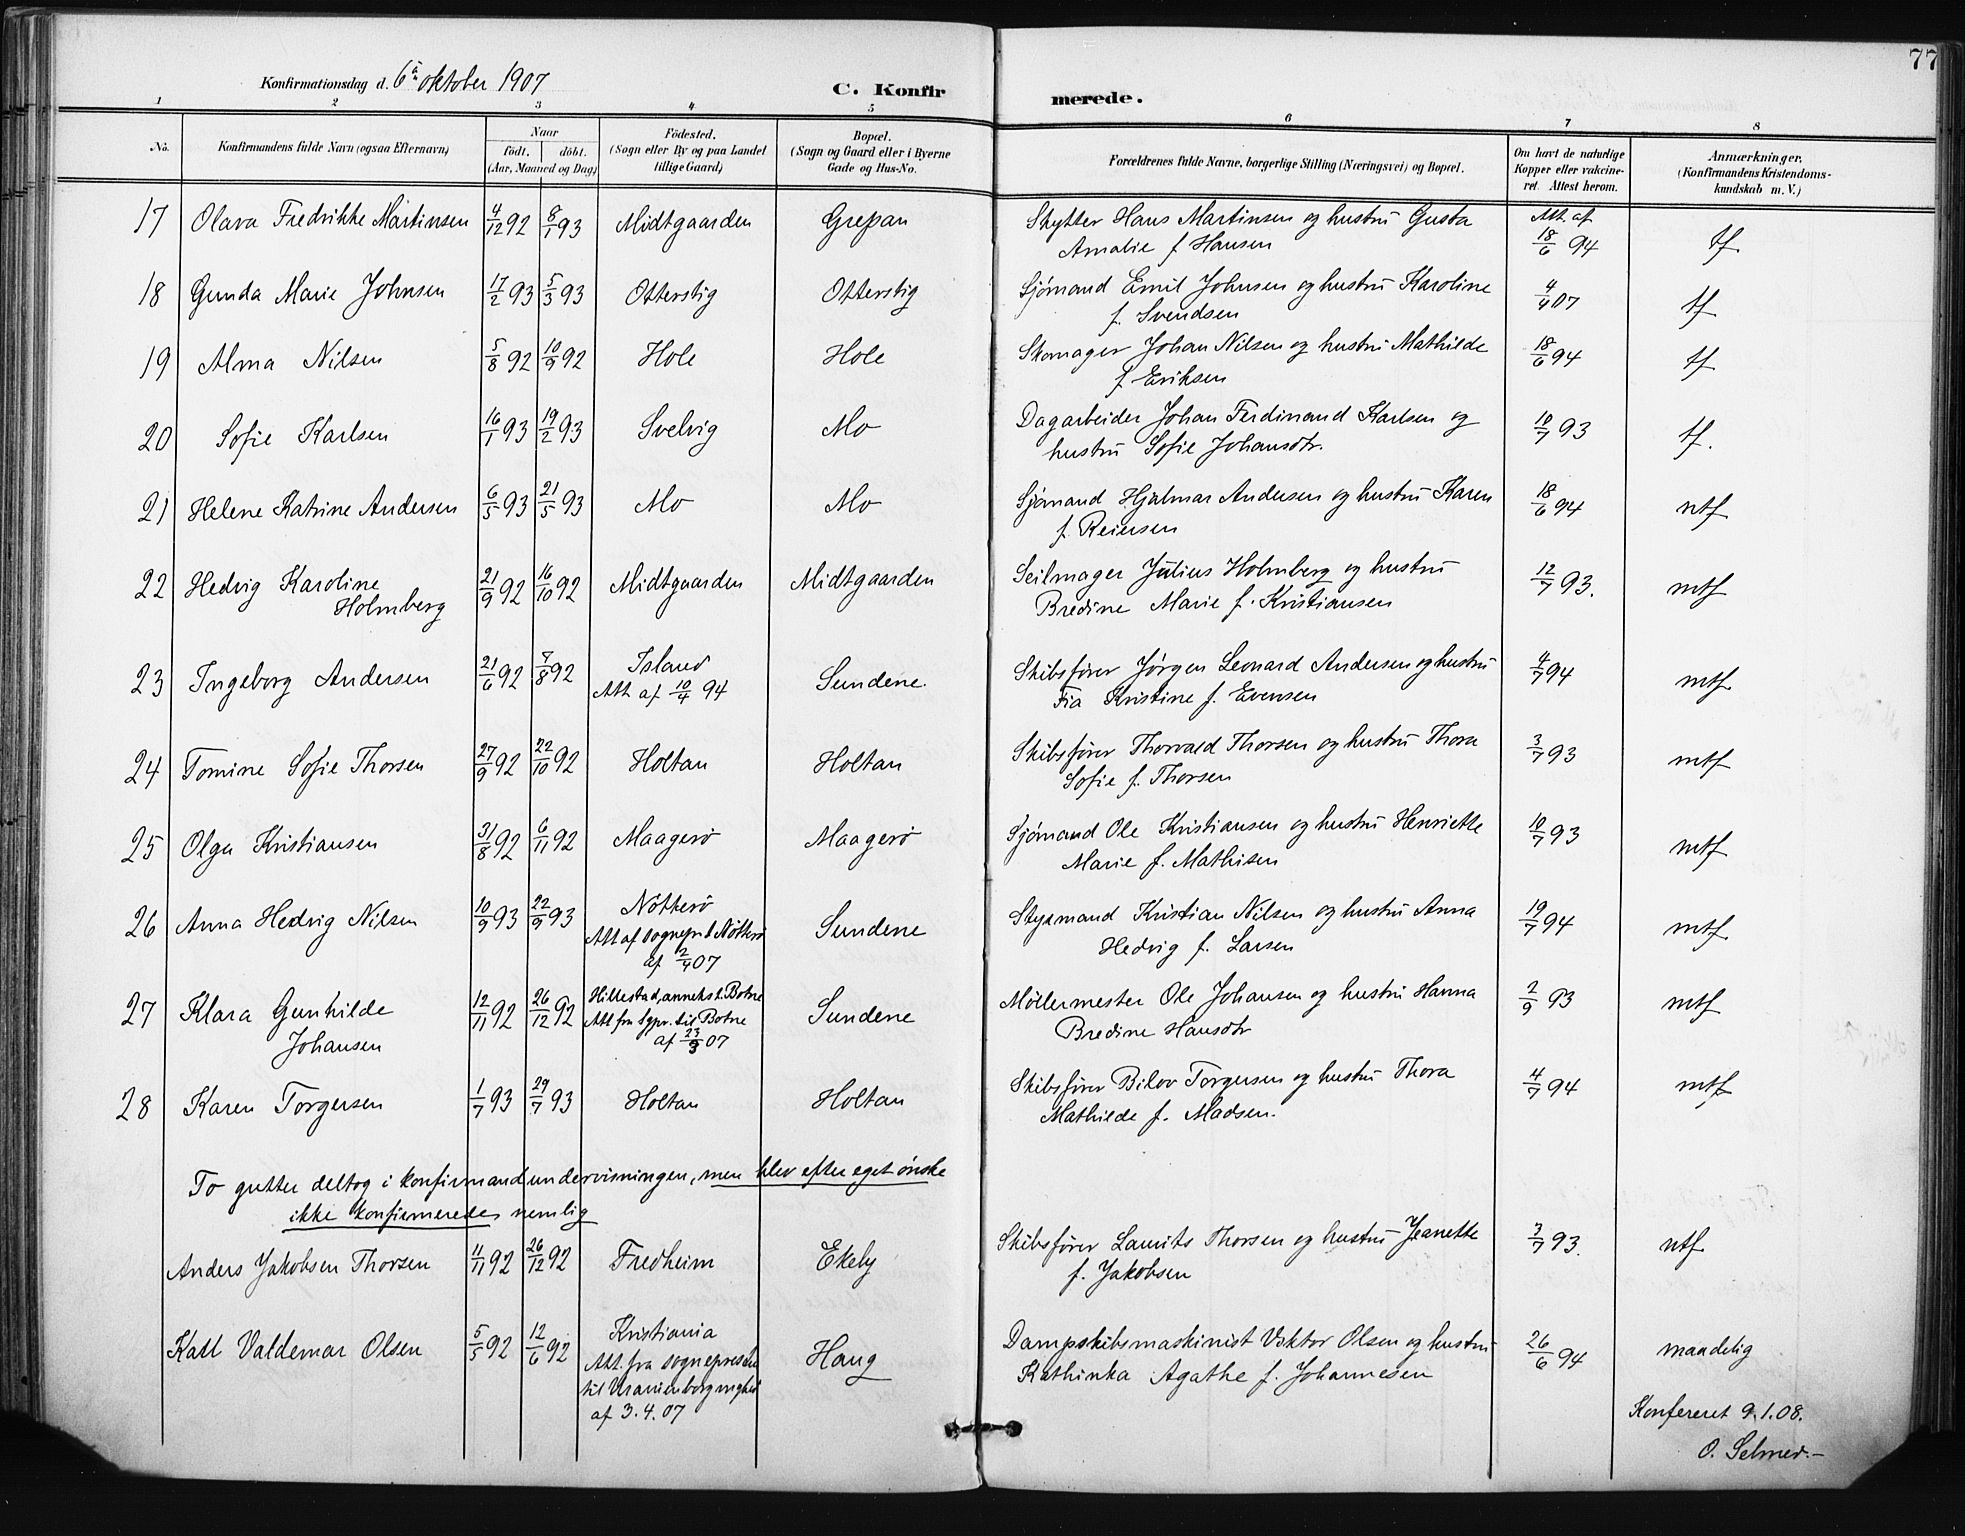 77
Konfirmationsdag d. 6te oktober 1907
C. Konfirmerede.
1 2 3 4 5 6 7 8
No. Konfirmandens fulde Navn (ogsaa Efternavn) Naar født. døbt. (Aar, Maaned og Dag) Fødested. (Sogn eller By og paa Landet tillige Gaard) Bopæl. (Sogn og Gaard eller i Byerne Gade og Hus-No. Forældrenes fulde Navne, borgerlige Stilling (Næringsvei) og Bopæl. Om havt de naturlige Kopper eller vakcineret. Attest herom. Anmærkninger. (Konfirmandens Kristendomskundskab m. V.)
17 Olava Fredrikke Martinsen 4/12 92 8/1 93 Midtgaarden Grepan Skytter Hans Martinsen og hustru Gusta Att. af
Amalie f. Hansen 18/6 94 tf
18 Gunda Marie Johnsen 17/2 93 5/3 93 Otterstig Otterstig Sjömand Emil Johnsen og hustru Karoline 4/4 07 tf
f. Svendsen
19 Alma Nilsen 5/8 92 10/9 92 Hole Hole Skomager Johan Nilsen og hustru Mathilde 18/6 94 tf
f. Eriksen
20 Sofie Karlsen 16/1 93 19/2 93 Svelvig Mo Dagarbeider Johan Ferdinand Karlsen og 10/7 93 tf.
hustru Sofie Johansdtr.
21 Helene Katrine Andersen 6/5 93 21/5 93 Mo Mo Sjömand Hjalmar Andersen og hustru Karen 18/6 94 ntf
f. Reiersen
22 Hedvig Karoline 21/9 92 16/10 92 Midtgaarden Midtgaarden Seilmager Julius Holmberg og hustru 12/7 93. mtf
Holmberg Bredine Marie f. Kristiansen
23 Ingeborg Andersen 21/6 92 7/8 92 Island Sundene. Skibsfører Jørgen Leonard Andersen og hustru 4/7 94 mtf
Att af 10/4 94 Fia Kristine f. Evensen
24 Tomine Sofie Thorsen 27/9 92 22/10 92 Holtan Holtan Skibsfører Thorvald Thorsen og hustru Thora 3/7 93 mtf
Sofie f. Thorsen
25 Olga Kristiansen 31/8 92 6/11 92 Maagerö Maagerö Sjömand Ole Kristiansen og hustru Henriette 10/7 93 mtf
Marie f. Mathisen
26 Anna Hedvig Nilsen 10/9 93 22/9 93 Nötterö Sundene Styrmand Kristian Nilsen og hustru Anna 19/7 94 mtf
Att af sognepr. t Nötterö Hedvig f. Larsen
af 2/4 07
27 Klara Gunhilde 12/11 92 26/12 92 Hillestad, anneks t. Botne Sundene Möllermester Ole Johansen og hustru Hanna 2/9 93 mtf
Johansen Att fra Sgpr. til Botne Bredine Hansdtr
af 23/3 07
28 Karen Torgersen 1/7 93 29/7 93 Holtan Holtan Skibsfører Thora 4/7 94 mtf
Mathilde f. Madsen.
To gutter deltog i konfirmandundervisningen, men blev efter eget önske
ikke konfirmerede, nemlig
Anders Jakobsen Thorsen 11/11 92 26/12 92 Fredheim Ekeby Skibsfører Laurits Thorsen og hustru Jeanette 3/7 93. ntf.
f. Jakobsen
Karl Valdemar Olsen 5/5 92 12/6 92 Kristiania Haug Dampskibsmaskinist Viktor Olsen og hustru 26/6 94 maadelig
Att. fra sognepresten Kathinka Agathe f. Johannesen
til Uranienborg mghed
af 3.4.07
Konfereret 9.1.08.
O. Selmer.-